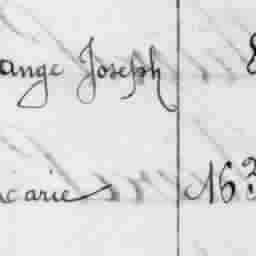 ange Joseph
carie 162